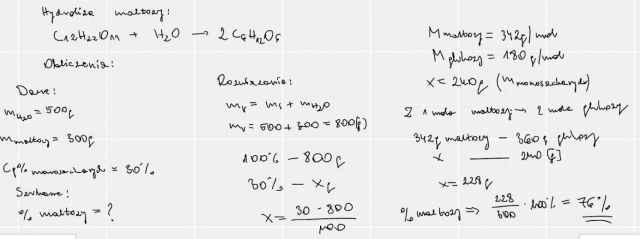 Hydroliza maltozy:
C12H22O11 + H2O → 2 C6H12O6
Obliczenia:
Dane:
mH2O = 500g
mmaltozy = 300g
Cp% monosacharyd = 30%
Szukane:
% maltozy = ?
Rozwiązanie:
mr = ms + mH2O
mr = 500 + 300 = 800[g]
100% – 800g
30% – xg
x = 30 · 800 / 100
M maltozy = 342g/mol
M glukozy = 180g/mol
x = 240g (m monosacharydu)
Z 1 mola maltozy → 2 mole glukozy
342g maltozy – 360g glukozy
x —— 240 [g]
x = 228g
% maltozy ⇒ 228/300 · 100% = 76%